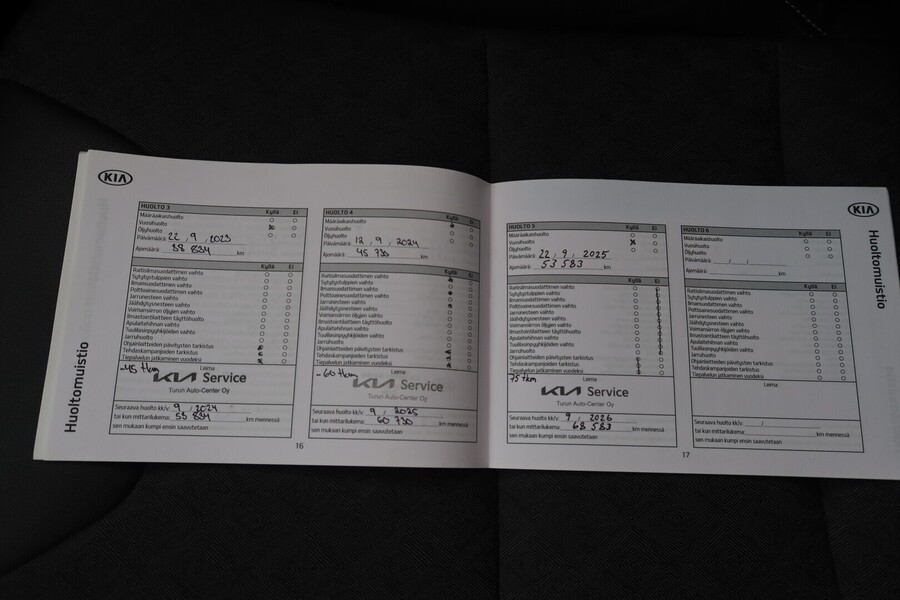 KIA
HUOLTO 3 Kyllä Ei
Määräaikaishuolto
Vuosihuolto
Öljyhuolto
Päivämäärä: 22, 9, 2023
Ajomäärä: 38 834 km
Kyllä Ei
Raitisilmasuodattimen vaihto
Sytytystulppien vaihto
Ilmansuodattimen vaihto
Polttoainesuodattimen vaihto
Jarrunesteen vaihto
Jäähdytysnesteen vaihto
Voimansiirron öljyjen vaihto
Ilmastointilaitteen täyttöhuolto
Apulaitehihnan vaihto
Tuulilasinpyyhkijöiden vaihto
Jarruhuolto
Ohjainlaitteiden päivitysten tarkistus
Tehdaskampanjoiden tarkistus
Tiepalvelun jatkaminen vuodeksi
-45 tkm Leima
KIA Service
Turun Auto-Center Oy
Seuraava huolto kk/v: 9, 2024
tai kun mittarilukema: 53 834 km mennessä
sen mukaan kumpi ensin saavutetaan
Huoltomuistio
16
HUOLTO 4 Kyllä Ei
Määräaikaishuolto
Vuosihuolto
Öljyhuolto
Päivämäärä: 12, 9, 2024
Ajomäärä: 45 735 km
Kyllä Ei
Raitisilmasuodattimen vaihto
Sytytystulppien vaihto
Ilmansuodattimen vaihto
Polttoainesuodattimen vaihto
Jarrunesteen vaihto
Jäähdytysnesteen vaihto
Voimansiirron öljyjen vaihto
Ilmastointilaitteen täyttöhuolto
Apulaitehihnan vaihto
Tuulilasinpyyhkijöiden vaihto
Jarruhuolto
Ohjainlaitteiden päivitysten tarkistus
Tehdaskampanjoiden tarkistus
Tiepalvelun jatkaminen vuodeksi
-60 tkm Leima
KIA Service
Turun Auto-Center Oy
Seuraava huolto kk/v: 9, 2025
tai kun mittarilukema: 60 735 km mennessä
sen mukaan kumpi ensin saavutetaan
KIA
HUOLTO 5 Kyllä Ei
Määräaikaishuolto
Vuosihuolto
Öljyhuolto
Päivämäärä: 22, 9, 2025
Ajomäärä: 53 583 km
Kyllä Ei
Raitisilmasuodattimen vaihto
Sytytystulppien vaihto
Ilmansuodattimen vaihto
Polttoainesuodattimen vaihto
Jarrunesteen vaihto
Jäähdytysnesteen vaihto
Voimansiirron öljyjen vaihto
Ilmastointilaitteen täyttöhuolto
Apulaitehihnan vaihto
Tuulilasinpyyhkijöiden vaihto
Jarruhuolto
Ohjainlaitteiden päivitysten tarkistus
Tehdaskampanjoiden tarkistus
Tiepalvelun jatkaminen vuodeksi
75 tkm Leima
KIA Service
Turun Auto-Center Oy
Seuraava huolto kk/v: 9, 2026
tai kun mittarilukema: 68 583 km mennessä
sen mukaan kumpi ensin saavutetaan
17
HUOLTO 6 Kyllä Ei
Määräaikaishuolto
Vuosihuolto
Öljyhuolto
Päivämäärä: / /
Ajomäärä: km
Kyllä Ei
Raitisilmasuodattimen vaihto
Sytytystulppien vaihto
Ilmansuodattimen vaihto
Polttoainesuodattimen vaihto
Jarrunesteen vaihto
Jäähdytysnesteen vaihto
Voimansiirron öljyjen vaihto
Ilmastointilaitteen täyttöhuolto
Apulaitehihnan vaihto
Tuulilasinpyyhkijöiden vaihto
Jarruhuolto
Ohjainlaitteiden päivitysten tarkistus
Tehdaskampanjoiden tarkistus
Tiepalvelun jatkaminen vuodeksi
Leima
Seuraava huolto kk/v: /
tai kun mittarilukema: km mennessä
sen mukaan kumpi ensin saavutetaan
Huoltomuistio